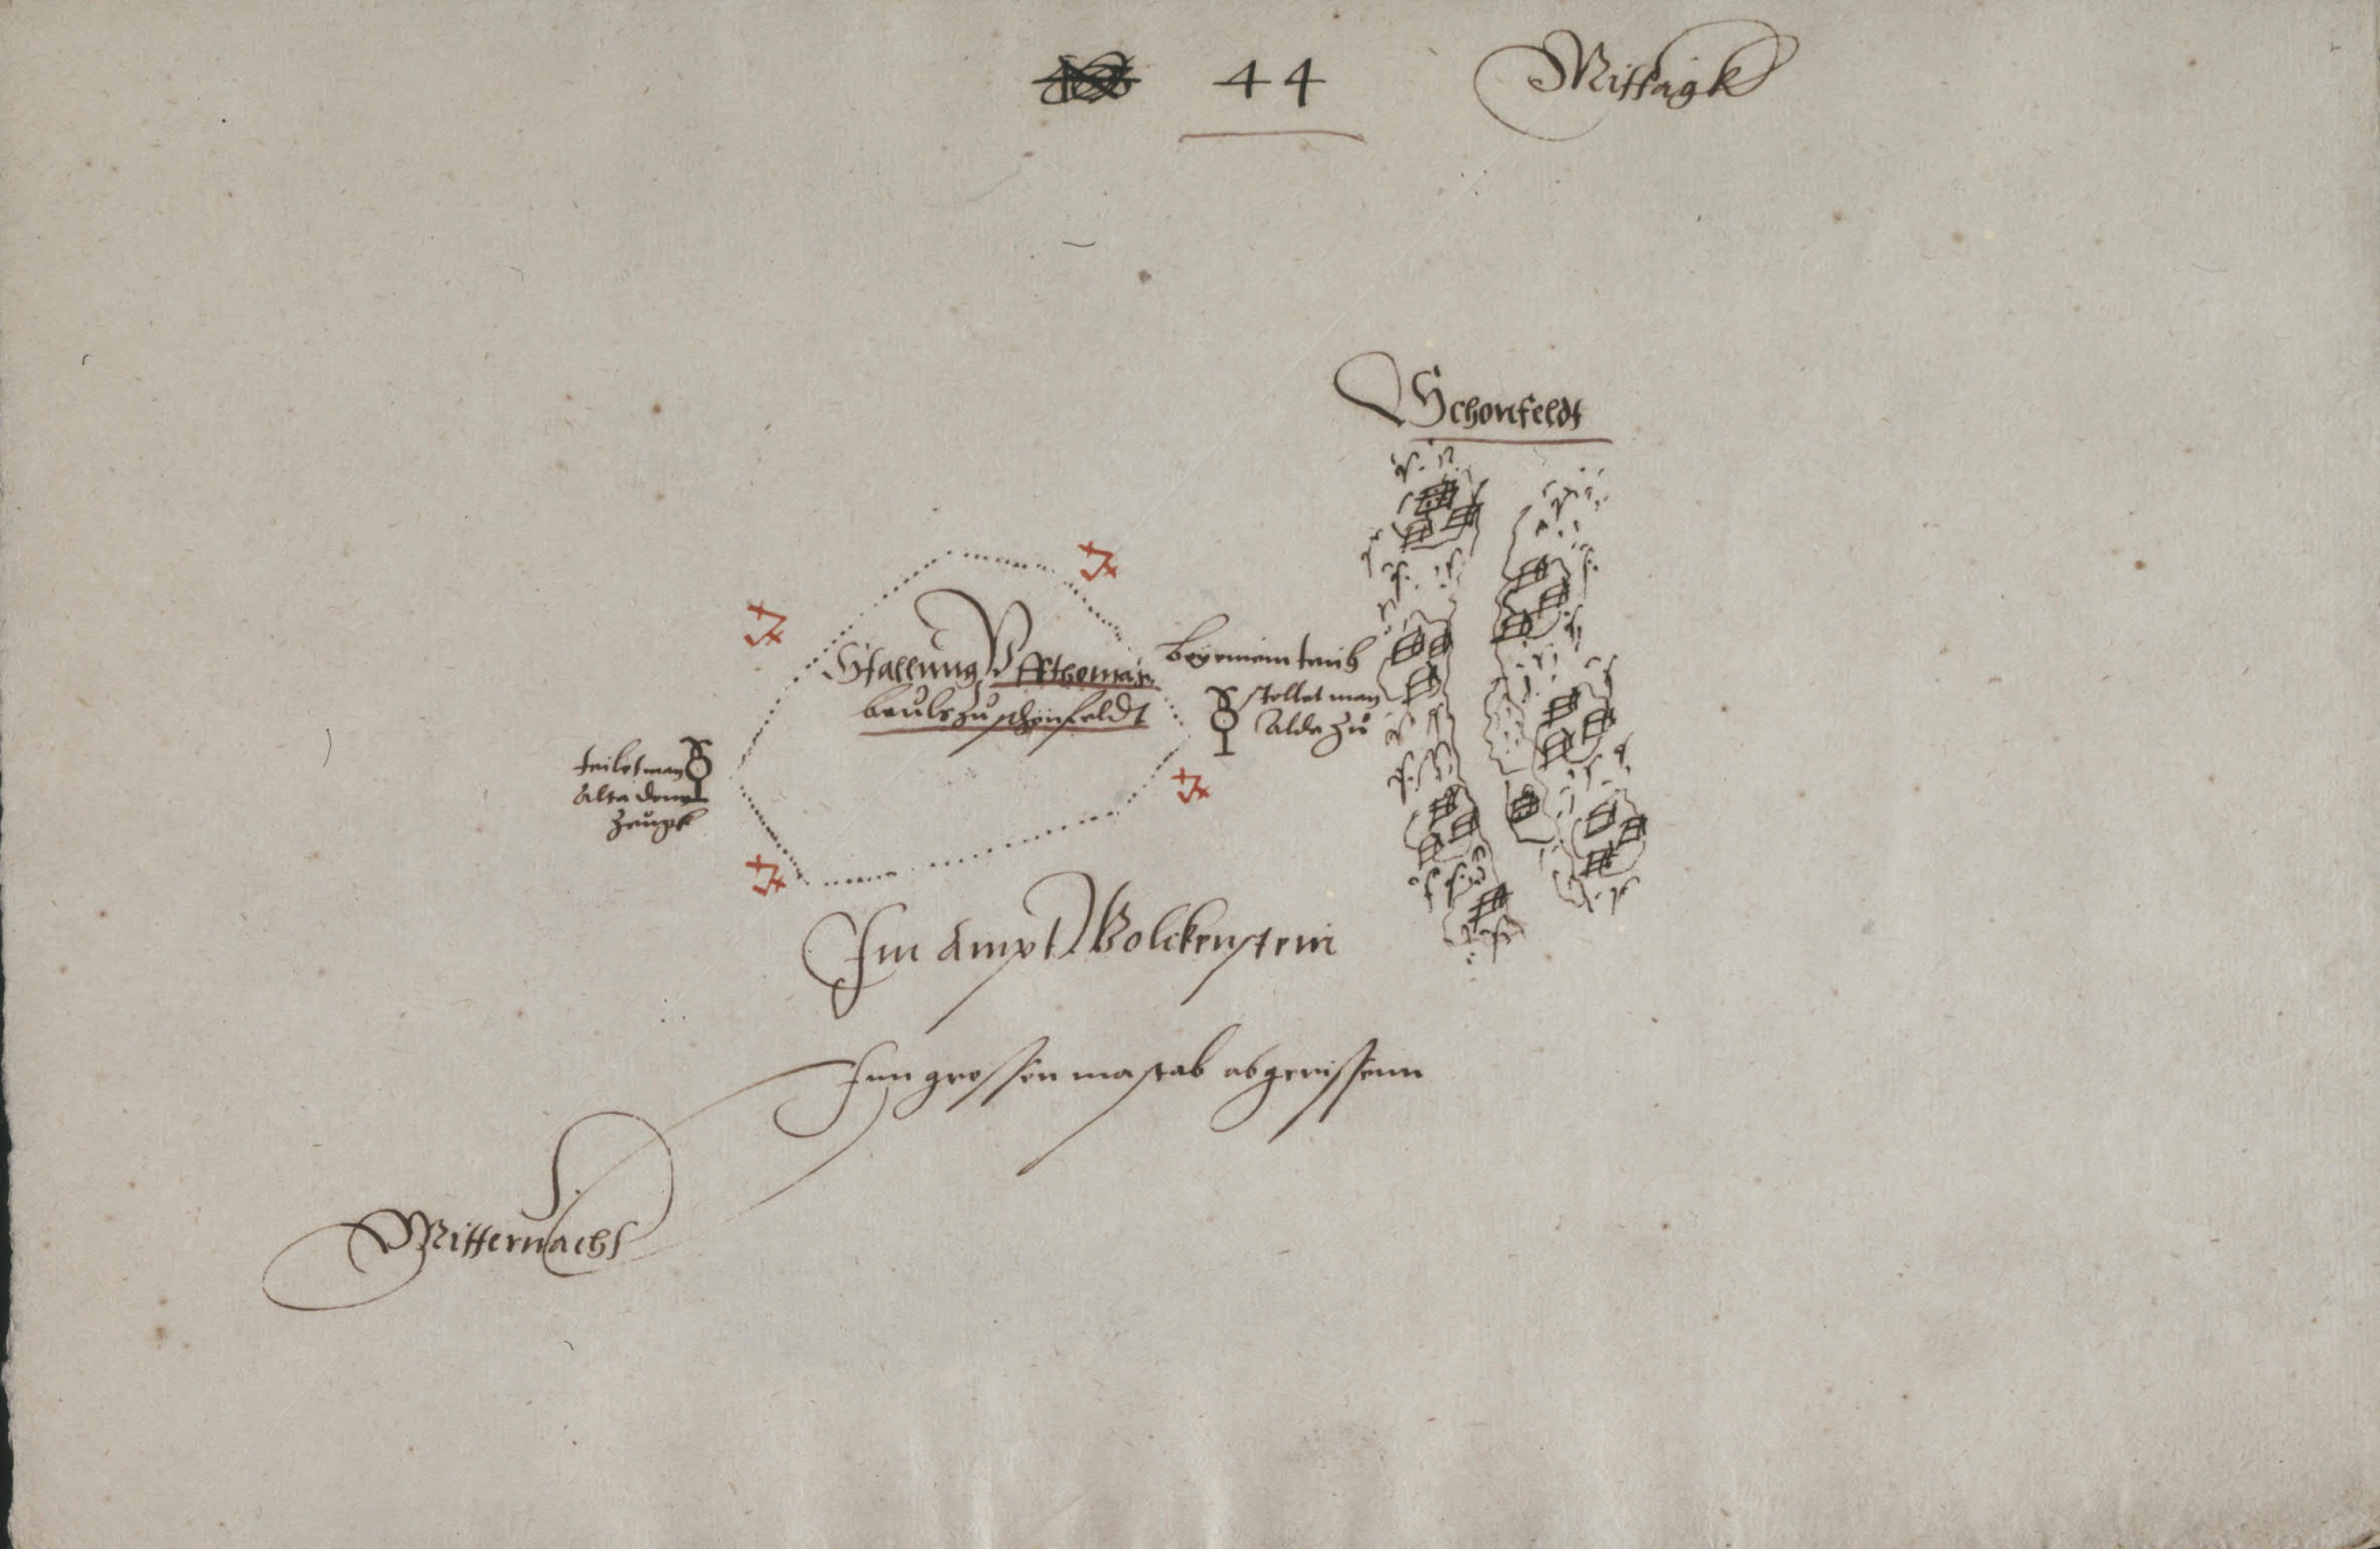 44
Mittagk
Schonfeldt
Stallung Vff Thomas
beuls zu schonfeldt
stellet man
Alda zu
teilet man
Alta den
zeugk
Im Ampt Wolckenstein
Inn grossen mastab abgerissenn
Mitternacht